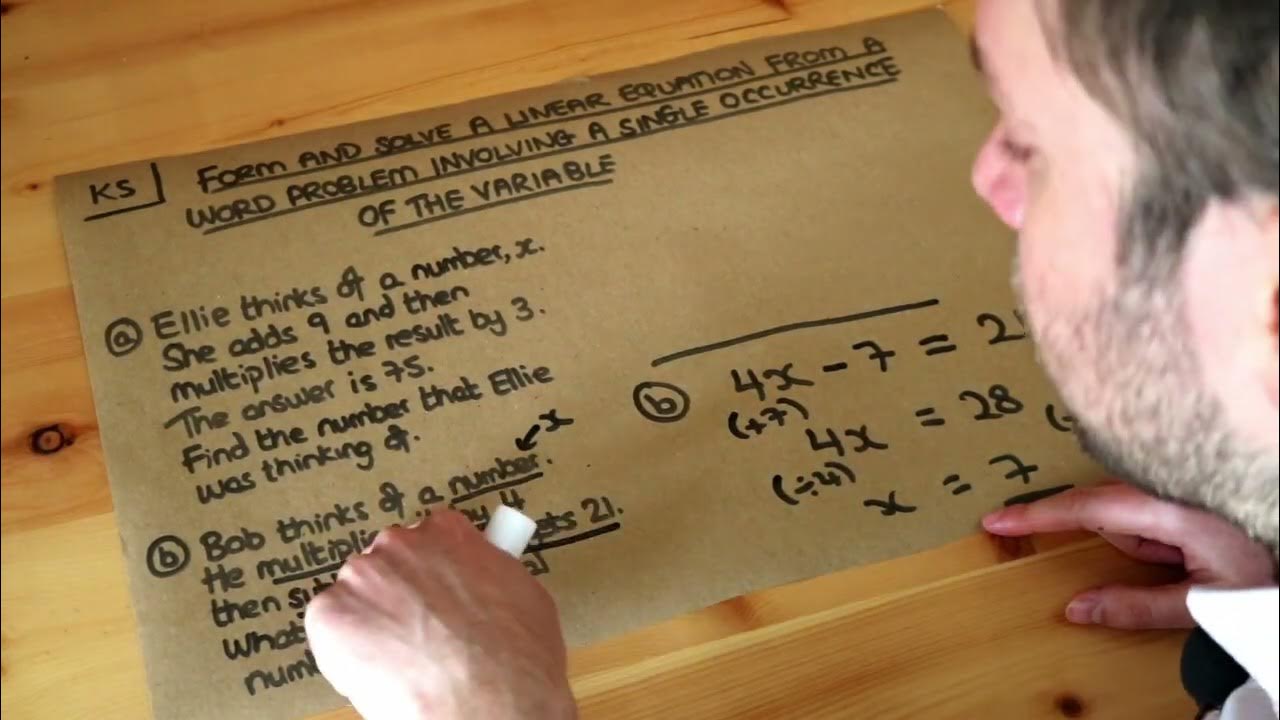 KS
FORM AND SOLVE A LINEAR EQUATION FROM A
WORD PROBLEM INVOLVING A SINGLE OCCURRENCE
OF THE VARIABLE
(a) Ellie thinks of a number, x.
She adds 9 and then
multiplies the result by 3.
The answer is 75.
Find the number that Ellie
was thinking of.
x
(b) Bob thinks of a number.
He by 4
then 21.
(b) 4x - 7 =
(+7) 4x = 28
(÷4) x = 7